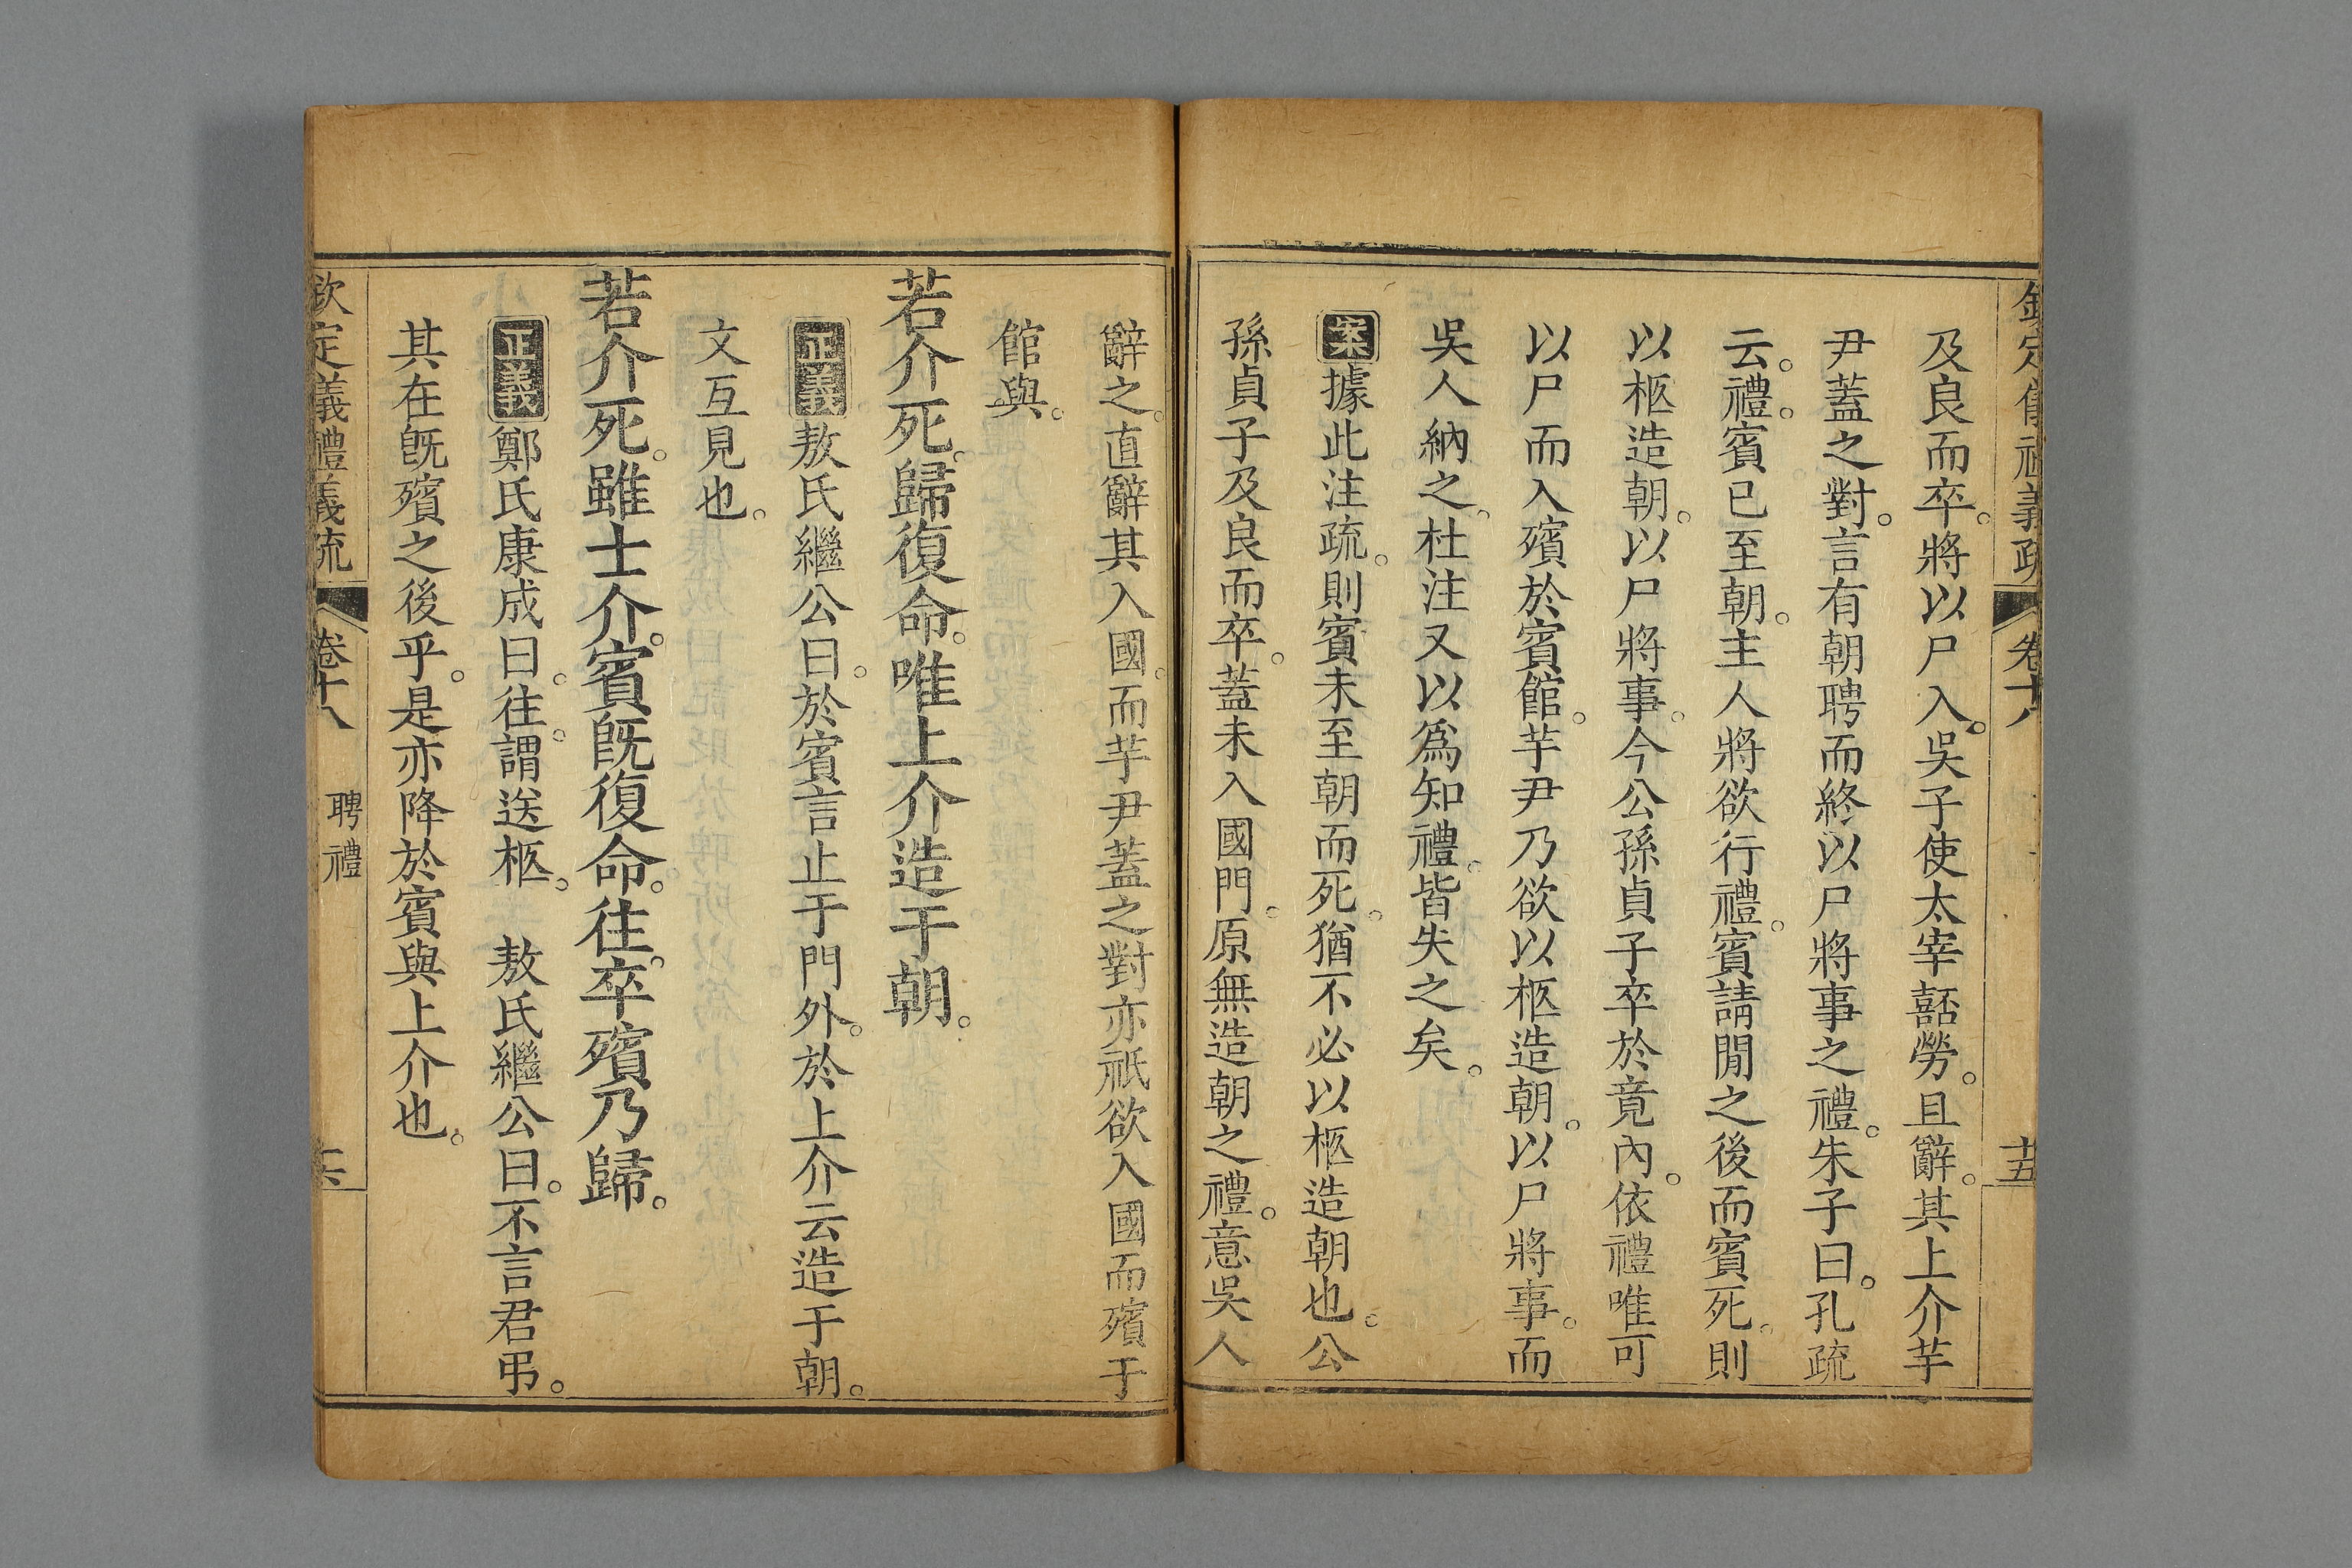 欽定儀禮義疏 卷十八 十五
及良而卒。將以尸入。吳子使太宰嚭勞。且辭。其上介芋
尹蓋之對。言有朝聘而終以尸將事之禮。朱子曰。孔疏
云。禮。賓已至朝。主人將欲行禮。賓請閒之後而賓死。則
以柩造朝。以尸將事。今公孫貞子卒於竟內。依禮唯可
以尸而入殯於賓館。芋尹乃欲以柩造朝。以尸將事。而
吳人納之。杜注又以爲知禮。皆失之矣。
案據此注疏。則賓未至朝而死。猶不必以柩造朝也。公
孫貞子及良而卒。蓋未入國門。原無造朝之禮。意吳人
辭之。直辭其入國。而芋尹蓋之對亦祇欲入國而殯于
館與。
若介死。歸復命。唯上介造于朝。
正義敖氏繼公曰。於賓言止于門外。於上介云造于朝。
文互見也。
若介死。雖士介。賓旣復命。往。卒殯乃歸。
正義鄭氏康成曰。往。謂送柩。 敖氏繼公曰。不言君弔。
其在旣殯之後乎。是亦降於賓與上介也。
欽定義禮義疏 卷十八 聘禮